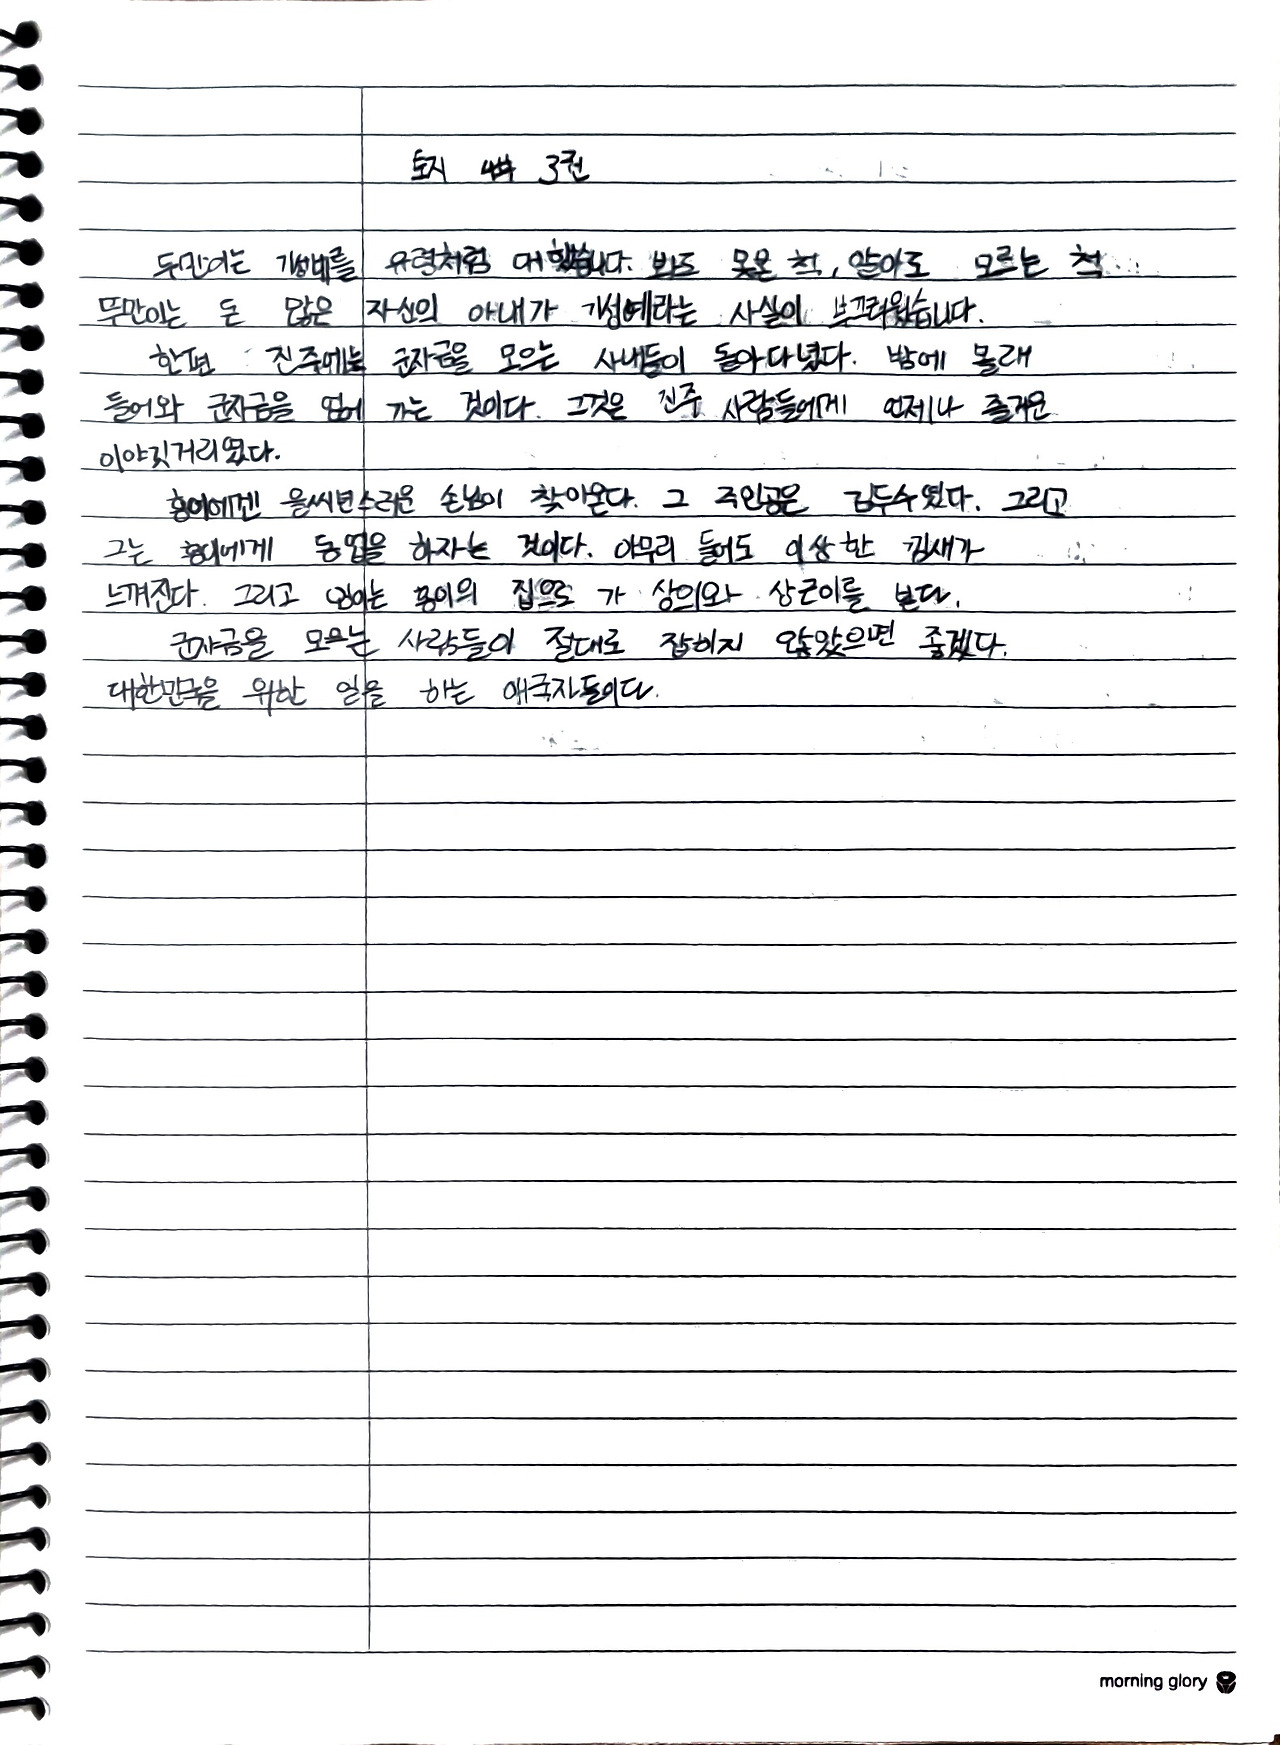 토지 4부 3권
두만이는 기성네를 유령처럼 대했습니다. 봐도 못본 척, 알아도 모르는 척
두만이는 돈 많은 자신의 아내가 기성네라는 사실이 부끄러웠습니다.
한편 진주에는 군자금을 모으는 사내들이 돌아다녔다. 밤에 몰래
들어와 군자금을 얻어 가는 것이다. 그것은 진주 사람들에게 언제나 즐거운
이야깃거리였다.
홍이에겐 을씨년스러운 손님이 찾아온다. 그 주인공은 김두수였다. 그리고
그는 홍이에게 동업을 하자는 것이다. 아무리 들어도 이상한 낌새가
느껴진다. 그리고 집으로 가 상의와 상근이를 본다.
군자금을 모으는 사람들이 절대로 잡히지 않았으면 좋겠다.
대한민국을 위한 일을 하는 애국자들이다.
morning glory